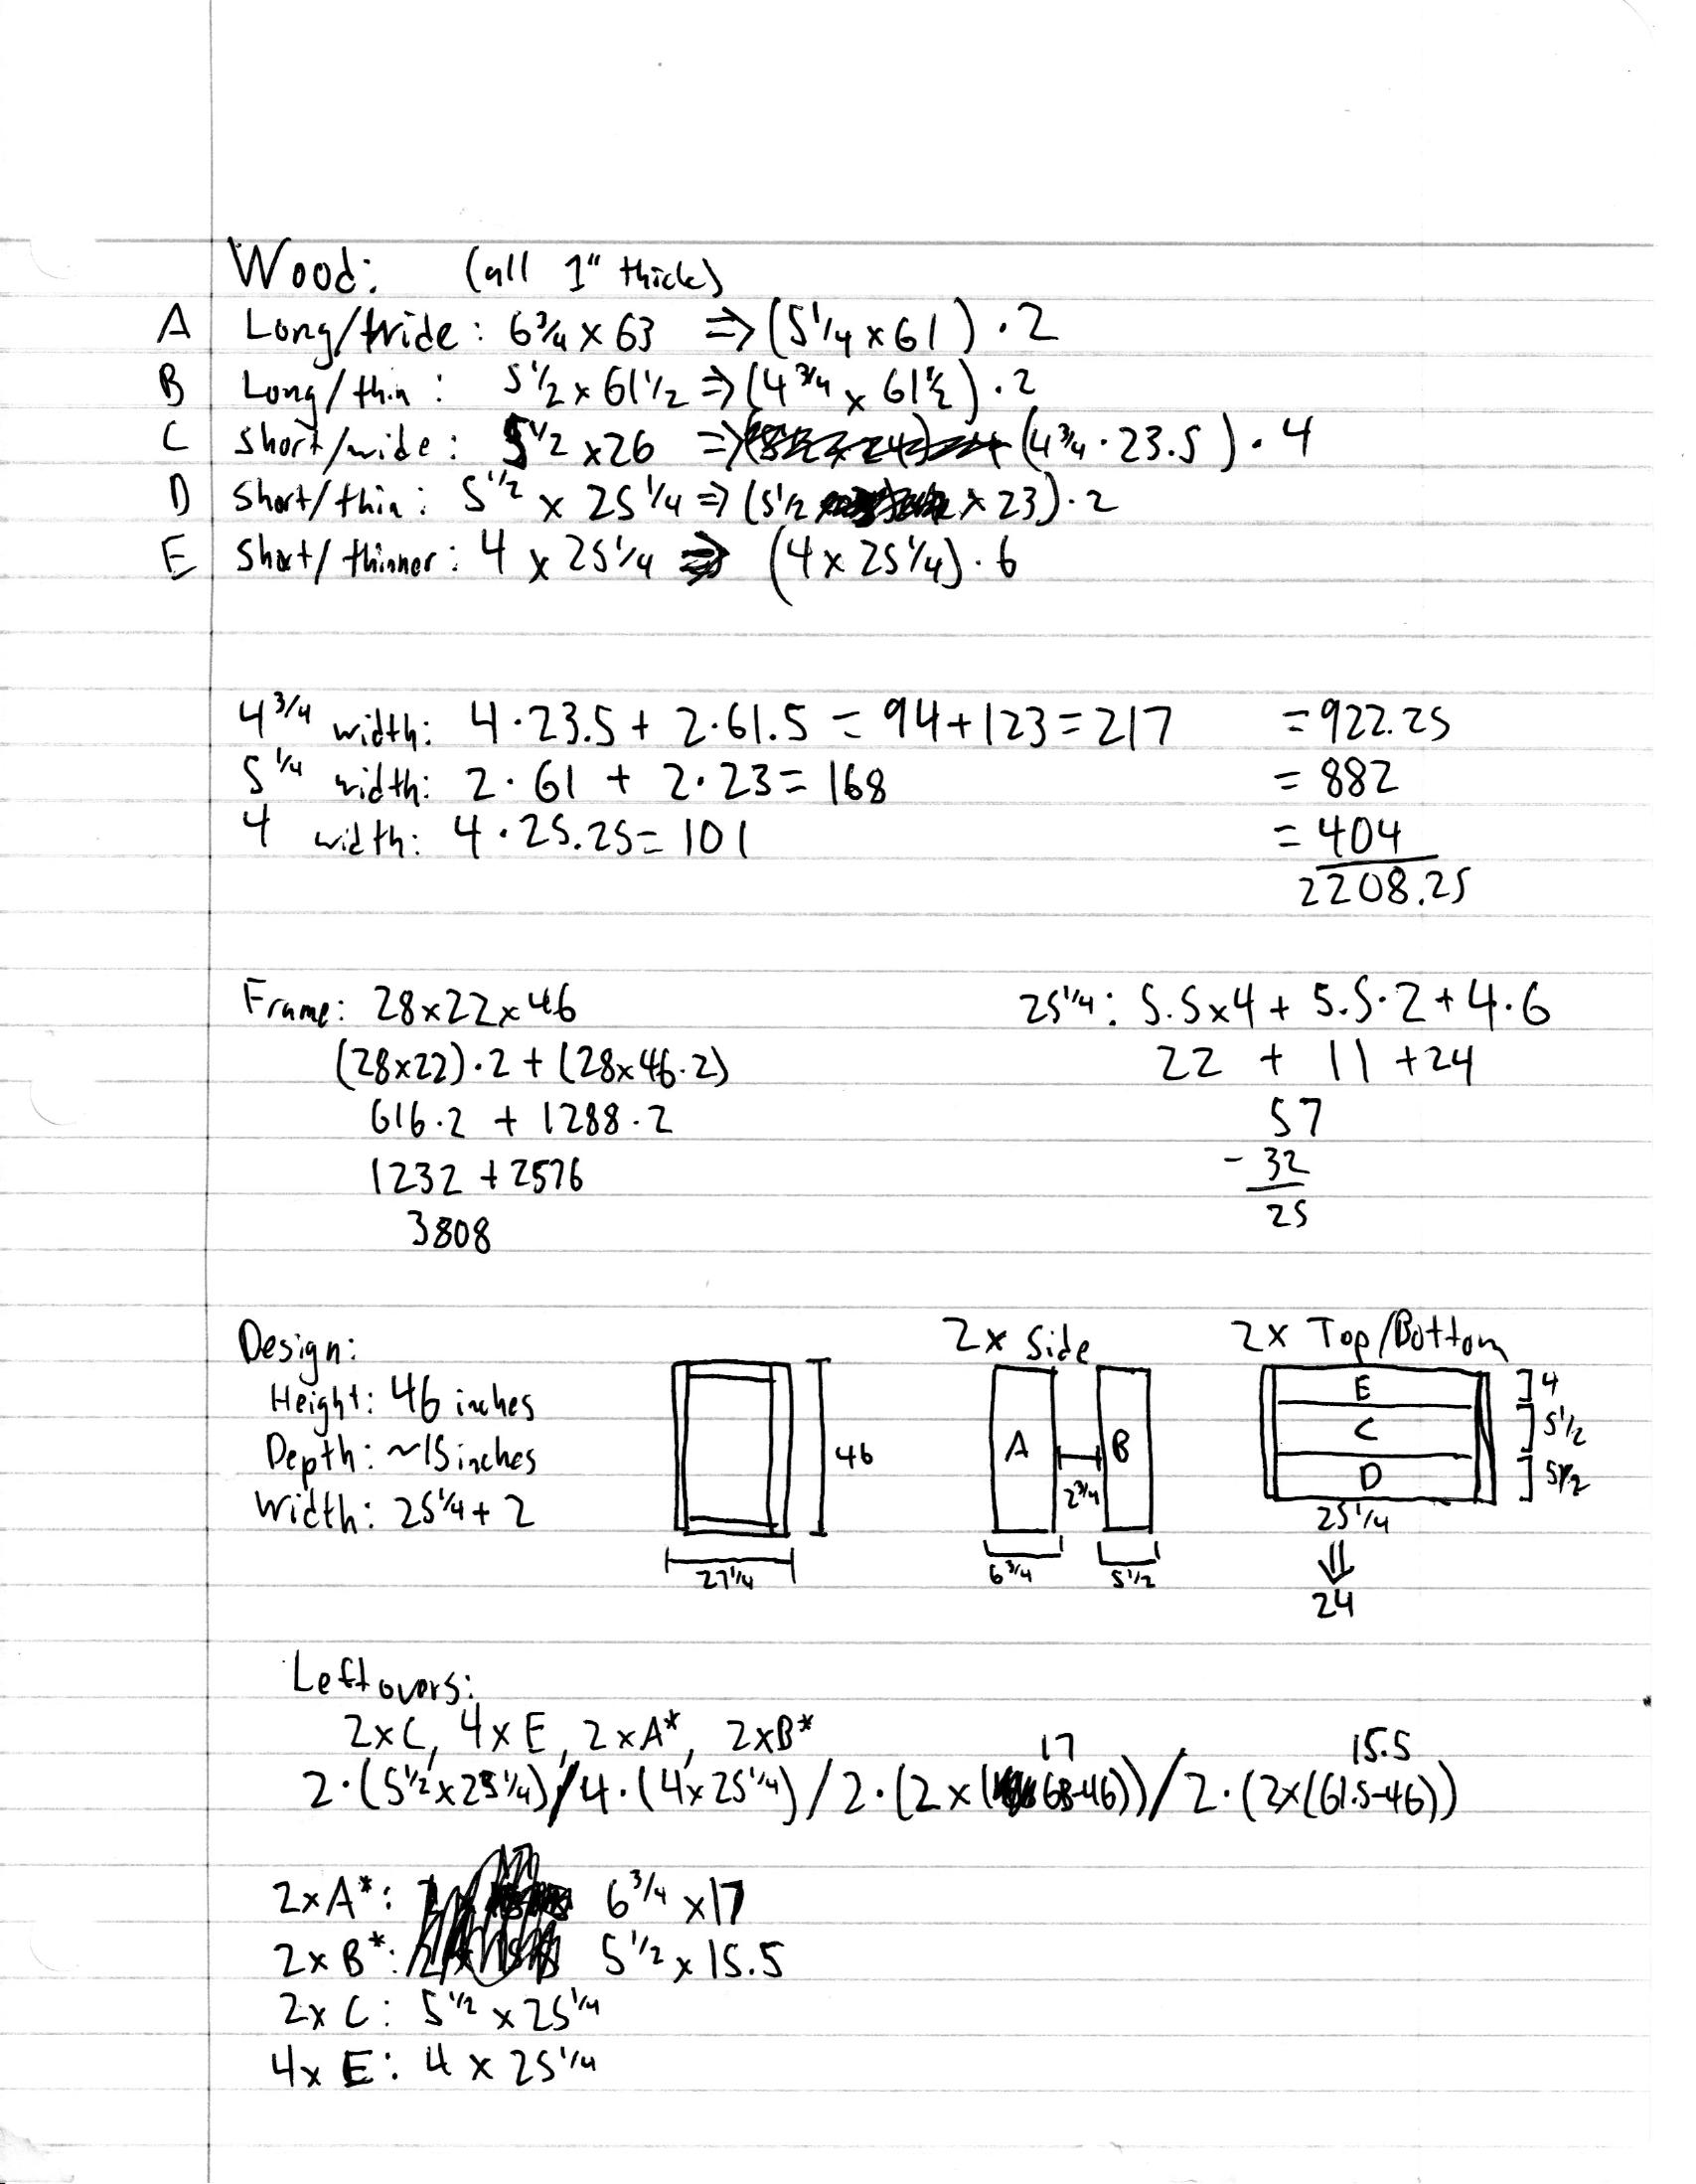 Wood: (all 1" thick)
A Long/wide: 6 3/4 x 63 => (5 1/4 x 61) · 2
B Long/thin: 5 1/2 x 61 1/2 => (4 3/4 x 61 1/2) · 2
C Short/wide: 5 1/2 x 26 => (4 3/4 · 23.5) · 4
D Short/thin: 5 1/2 x 25 1/4 => (5 1/2 x 23) · 2
E Short/thinner: 4 x 25 1/4 => (4 x 25 1/4) · 6
4 3/4 width: 4·23.5 + 2·61.5 = 94+123=217 = 922.25
5 1/4 width: 2·61 + 2·23= 168 = 882
4 width: 4·25.25= 101 = 404
2208.25
Frame: 28x22x46
(28x22)·2 + (28x46·2)
616·2 + 1288·2
1232 + 2576
3808
25 1/4: 5.5x4 + 5.5·2 + 4·6
22 + 11 + 24
57
- 32
25
Design:
Height: 46 inches
Depth: ~15 inches
Width: 25 1/4 + 2
46
27 1/4
2x Side
A
B
2 3/4
6 3/4
5 1/2
2x Top/Bottom
E
C
D
4
5 1/2
5 1/2
25 1/4
⇓
24
Leftovers:
2xC, 4xE, 2xA*, 2xB*
17 15.5
2·(5 1/2 x 25 1/4)/4·(4x25 1/4)/2·(2x(63-46))/2·(2x(61.5-46))
2xA*: 6 3/4 x17
2xB*: 5 1/2 x 15.5
2x C: 5 1/2 x25 1/4
4x E: 4 x 25 1/4